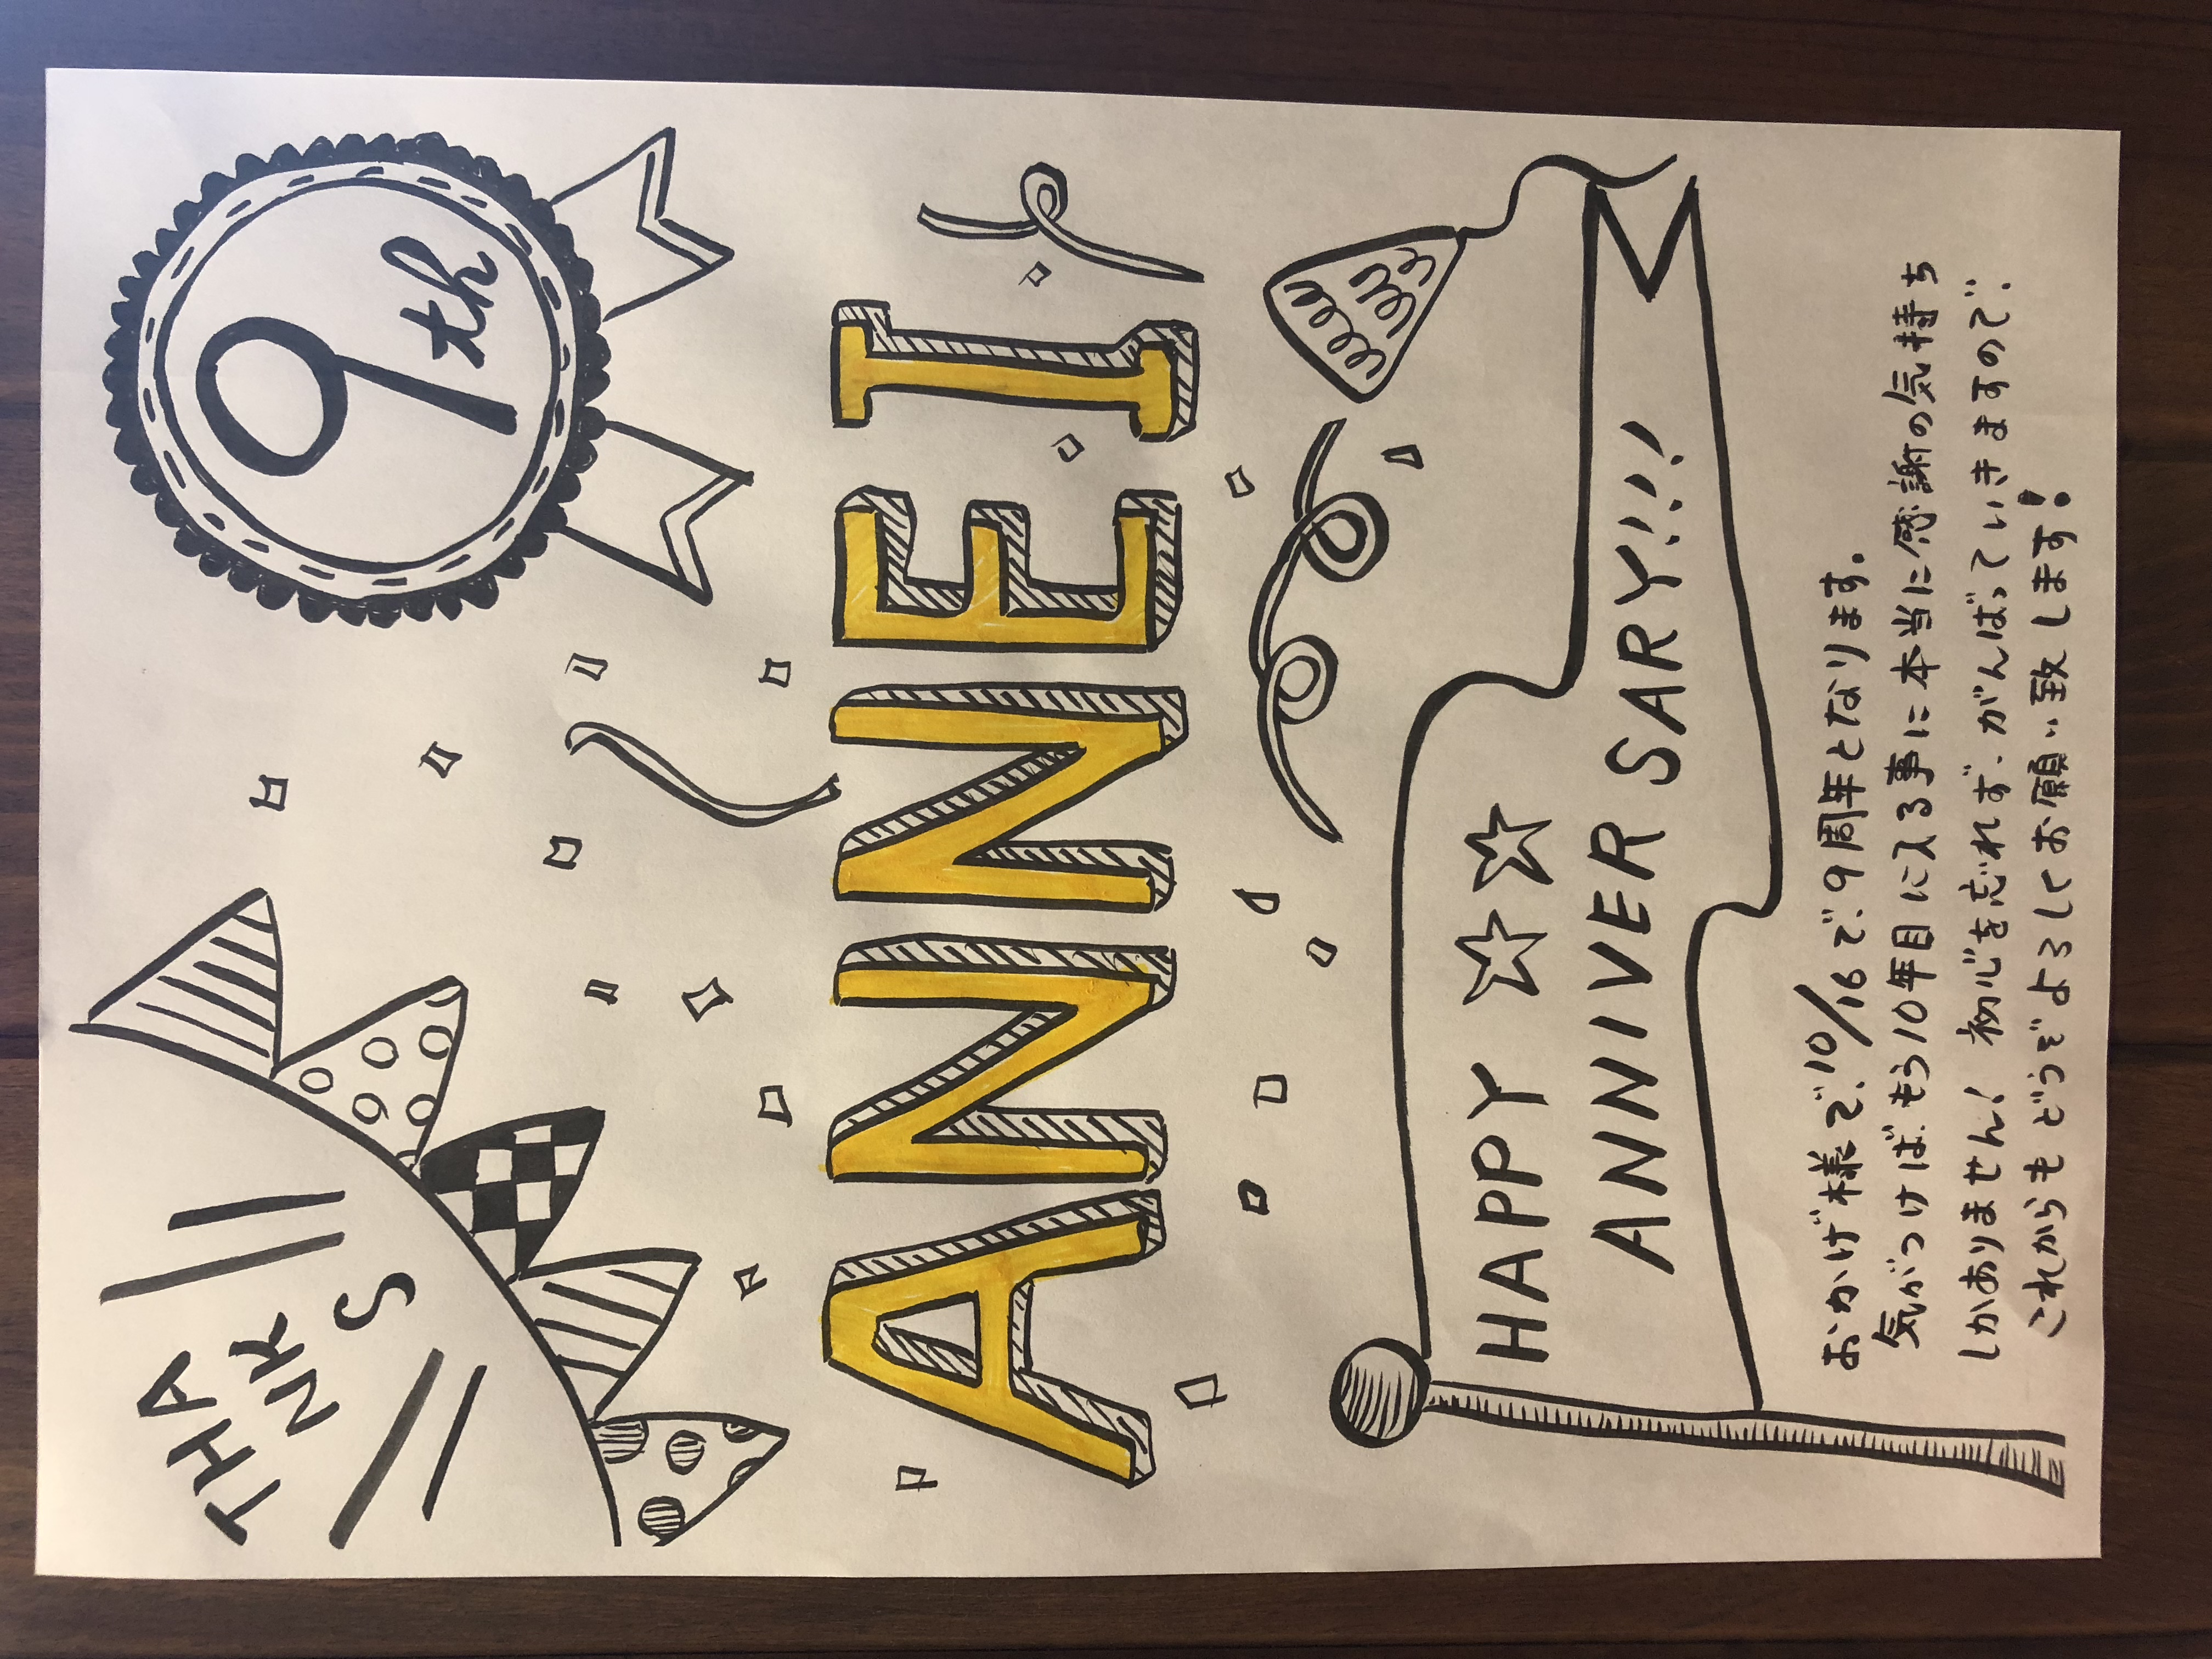 THA
NK
S
9th
ANNEI
HAPPY ☆☆
ANNIVERSARY!!!
おかげ様で、10/16で、9周年となります。
気がつけば、もう10年目に入る事に本当に感謝の気持ち
しかありません! 初心を忘れず、がんばっていきますので、
これからもどうぞよろしくお願い致します!